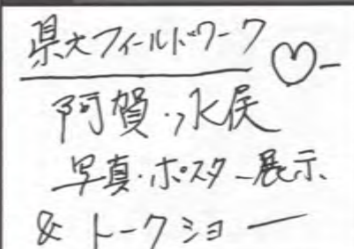 県大フィールドワーク
阿賀・水俣
写真・ポスター展示
& トークショー